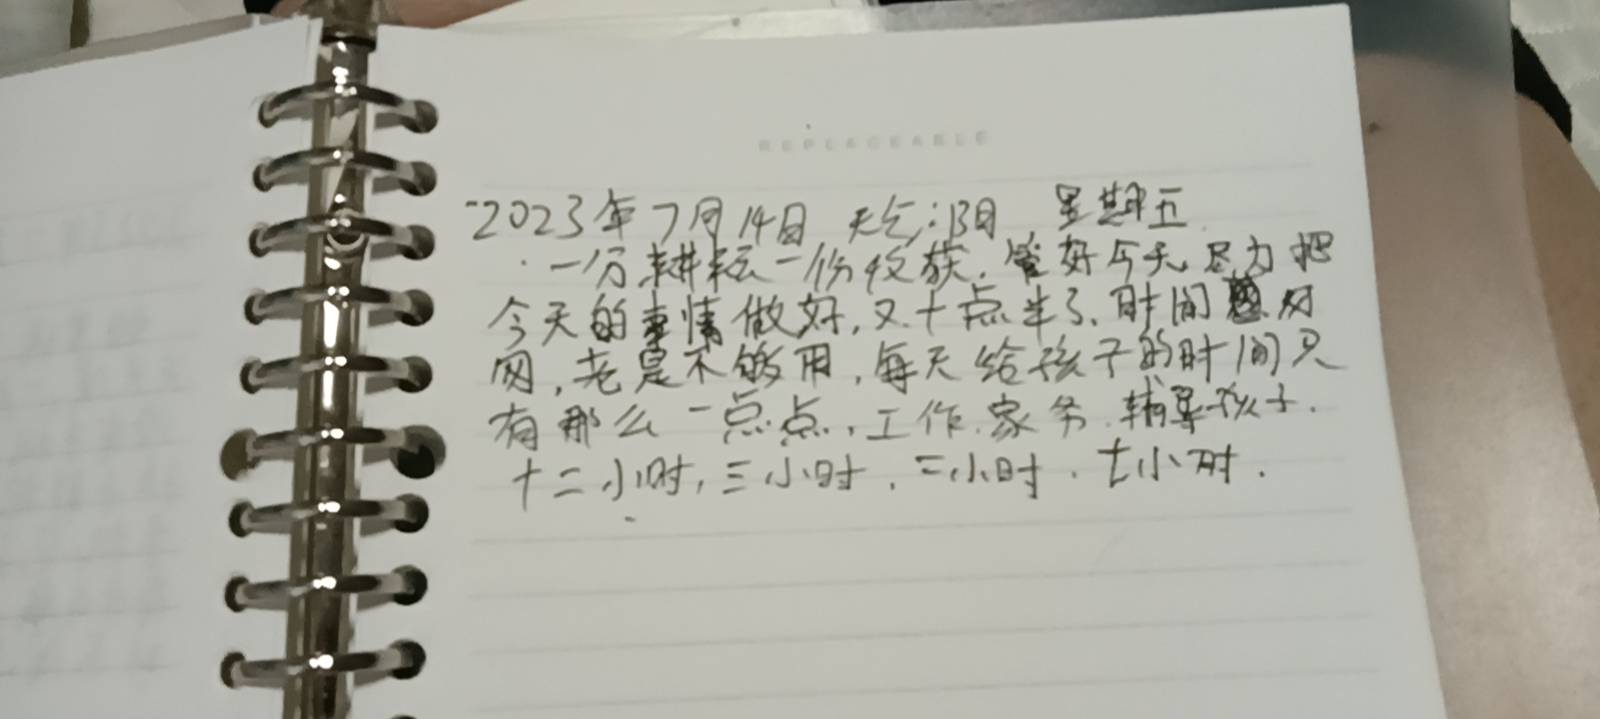 REPLACEABLE
2023年7月14日 天气:阳 星期五
一分耕耘一份收获.管好今天尽力把
今天的事情做好,又十点半了.时间对
网,老是不够用,每天给孩子的时间只
有那么一点点.工作.家务.辅导孩子.
十二小时,三小时.二小时.七小时.